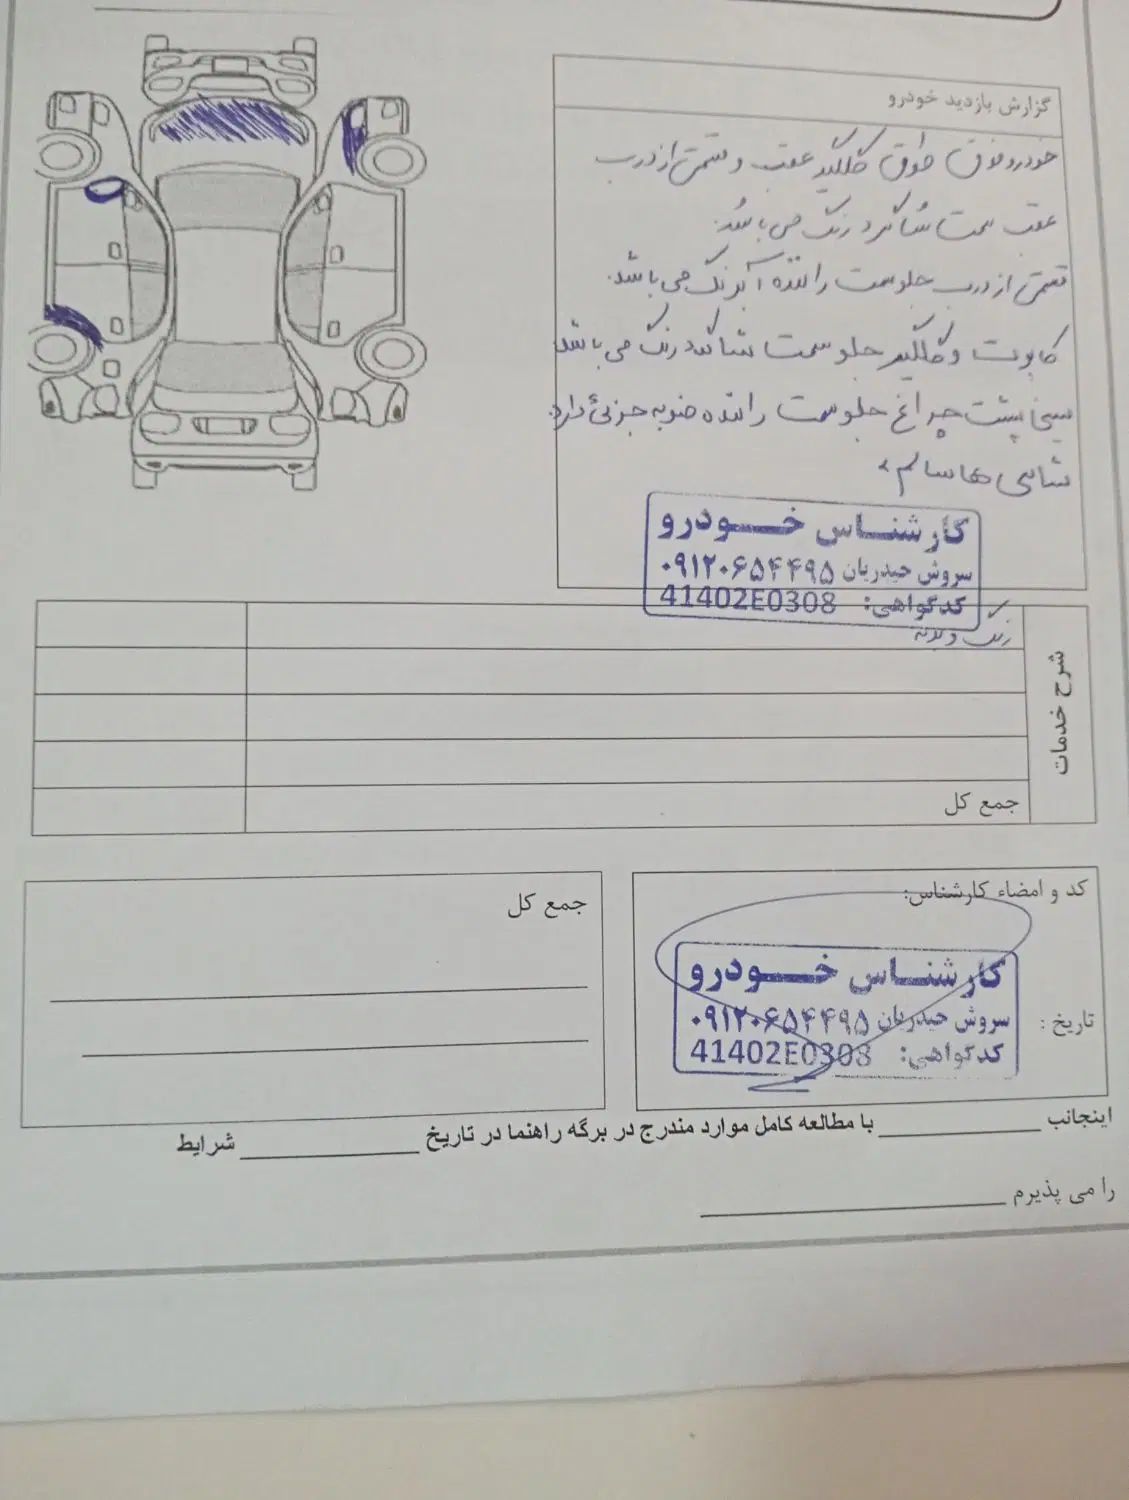 گزارش بازدید خودرو
خودرو فوق طوق گلگیر عقب و قسمتی از درب
عقب سمت شاگرد رنگ می باشد.
قسمتی از درب جلو سمت راننده آبرنگ می باشد.
کاپوت و گلگیر جلو سمت شاگرد رنگ می باشد
سینی پشت چراغ جلو سمت راننده ضربه جزئی دارد.
شاسی ها سالم
کارشناس خودرو
سروش حیدریان ۰۹۱۲۰۶۵۴۴۹۵
کدگواهی: 41402E0308
رنگ و بدنه
شرح خدمات
جمع کل
کد و امضاء کارشناس:
کارشناس خودرو
سروش حیدریان ۰۹۱۲۰۶۵۴۴۹۵
کدگواهی: 41402E0308
تاریخ :
جمع کل
اینجانب ____________ با مطالعه کامل موارد مندرج در برگه راهنما در تاریخ ____________ شرایط
را می پذیرم ____________